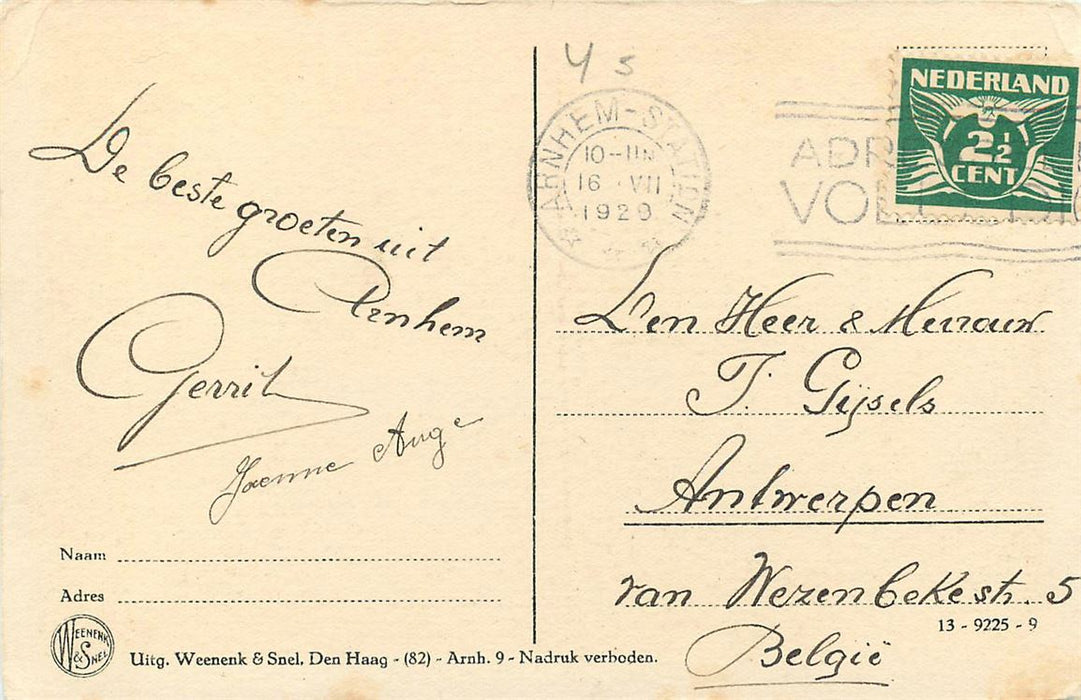 De beste groeten uit
Arnhem
Gerrit
Ange
Naam
Adres
WEENENK
& SNEL
Uitg. Weenenk & Snel, Den Haag - (82) - Arnh. 9 - Nadruk verboden.
4 5
ARNHEM-STATION
16 VII
1929
ADR
VOL
NEDERLAND
2½
CENT
Den Heer & Mevrouw
J. Gijsels
Antwerpen
van Wezenbekestr. 5
13 - 9225 - 9
België